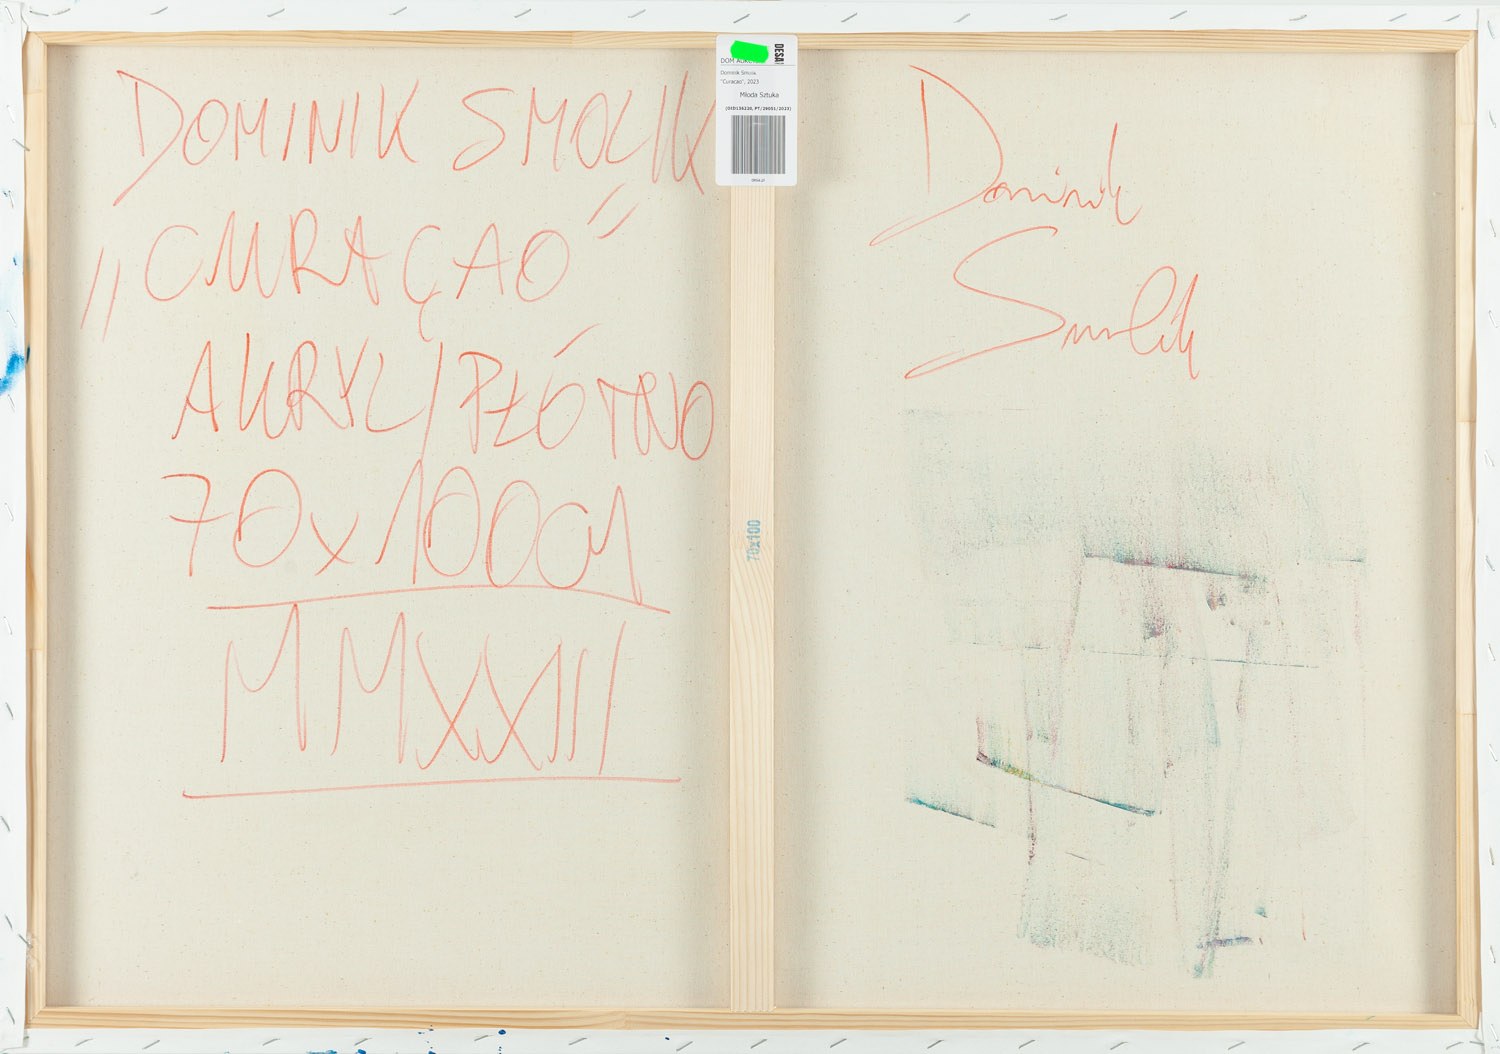 DOMINIK SMOLIK
„CURAÇAO”
AKRYL/PŁÓTNO
70x100cm
MMXXIII
DESA
DOM
Dominik Smolik
"Curacao", 2023
Młoda Sztuka
desa.pl
70x100
Dominik
Smolik